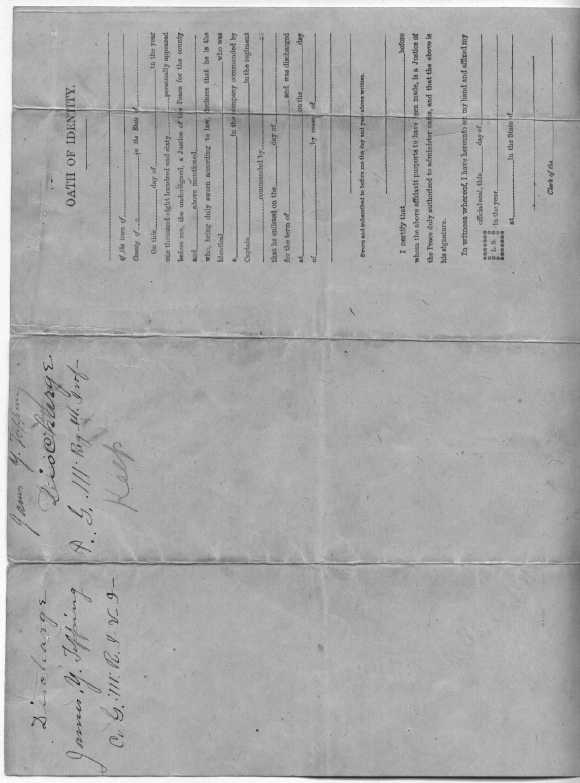 OATH OF IDENTITY.
of the town of
County of in the State of
On this, day of in the year
one thousand eight hundred and sixty personally appeared
before me, the undersigned, a Justice of the Peace for the county
and above mentioned,
who, being duly sworn according to law, declares that he is the
identical who was
a in the company commanded by
Captain in the regiment
commanded by
that he enlisted on the day of
for the term of and was discharged
at on the day
of by reason of
Sworn and subscribed to before me the day and year above written.
I certify that before
whom the above affidavit purports to have been made, is a Justice of
the Peace duly authorized to administer oaths, and that the above is
his signature.
In witness whereof, I have hereunto set my hand and affixed my
official seal, this day of
L. S. in the year
at in the State of
Clerk of the
James Y. Topping
Discharge
Keep
Discharge
James Y. Topping